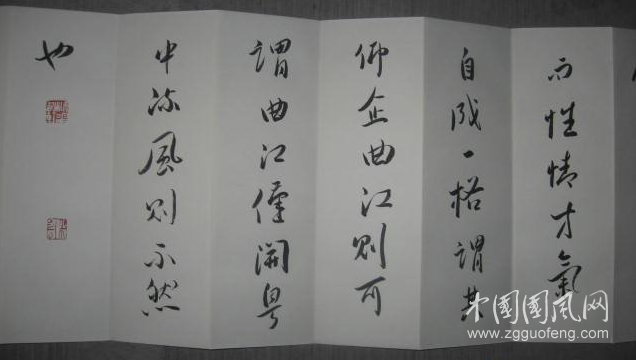 而性情才氣
自成一格謂其
仰企曲江則可
謂曲江僅開粵
中流風則不然
也
中國國风网
www.zgguofeng.com